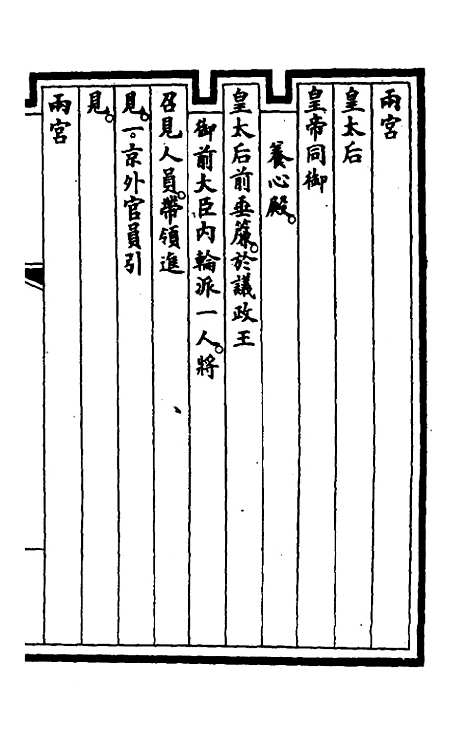 兩宮
皇太后
皇帝同御
養心殿。
皇太后前垂簾。於議政王
御前大臣內輪派一人。將
召見人員。帶領進
見。一。京外官員引
見。
兩宮